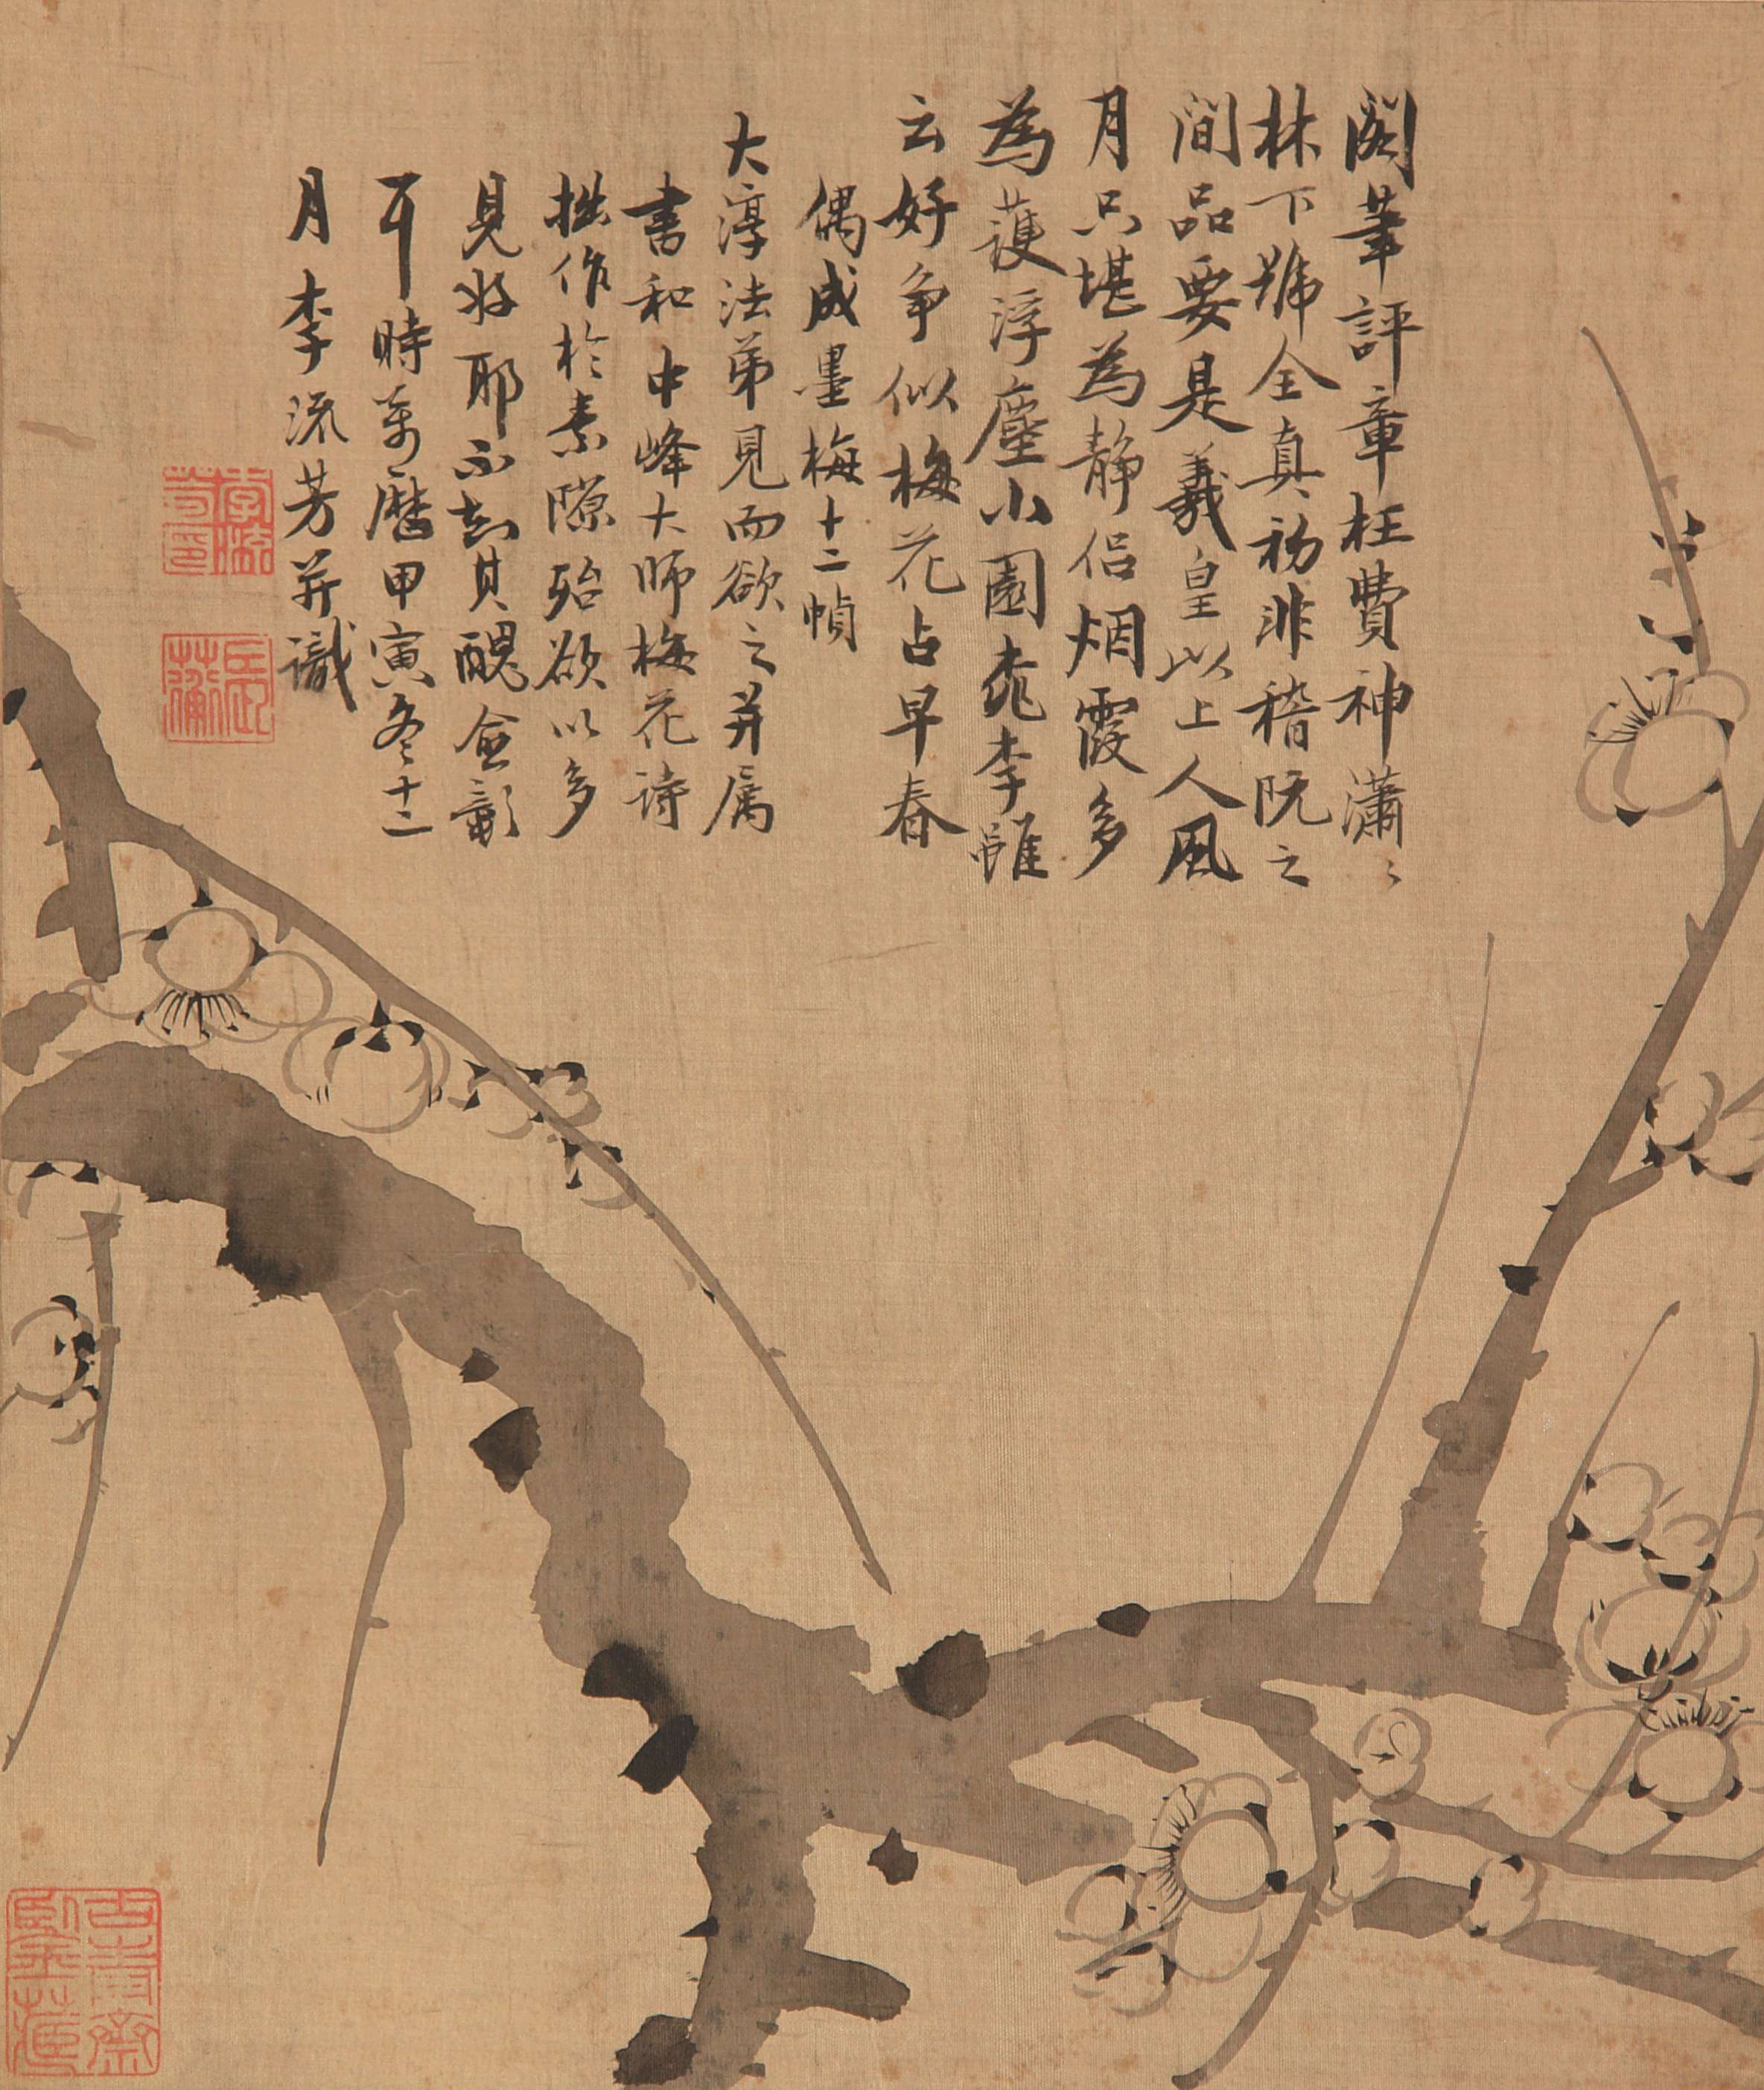 閣筆評章枉費神瀟〻
林下號全真初非稽阮之
間品要是羲皇以上人風
月只堪為静侣烟霞多
為護浮塵小園桃李雖
云好争似梅花占早春
偶成墨梅十二幀
大淳法弟見而欲之并属
書和中峰大師梅花诗
拙作於素隙殆欲以多
見好耶不知其醜益彰
耳時萬曆甲寅冬十二
月李流芳并識
李流芳印
長蘅